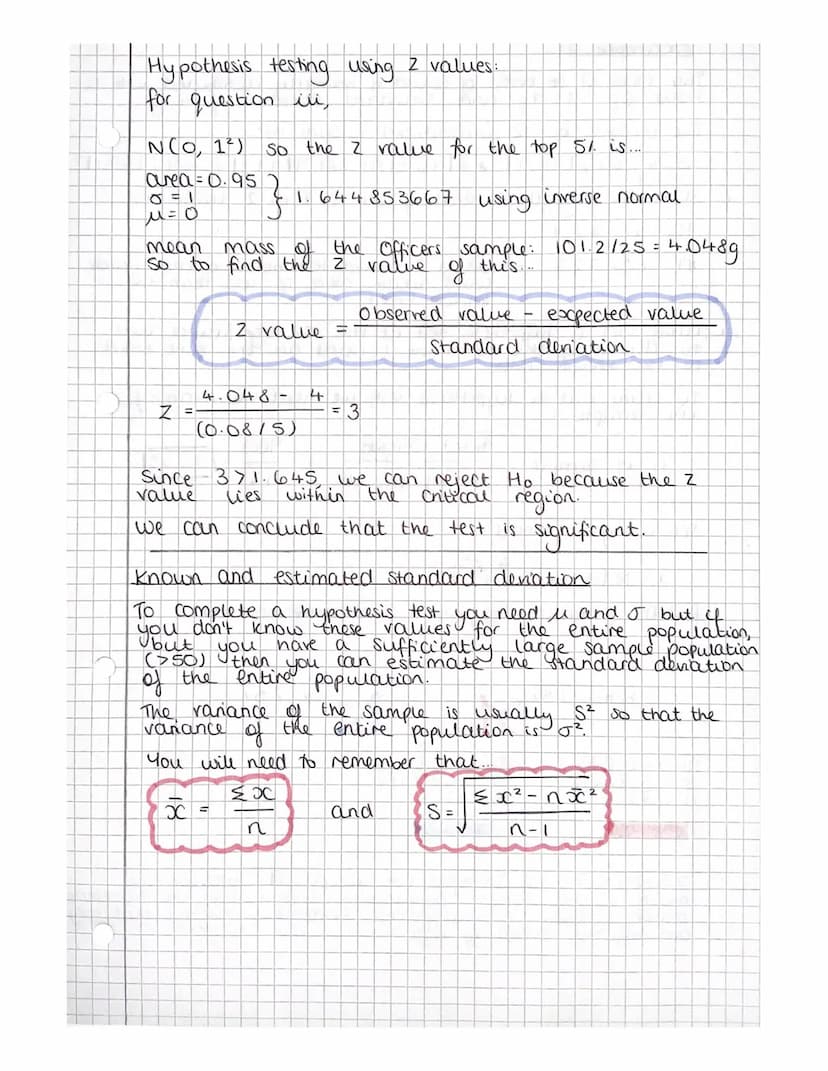 Hypothesis testing using Z values:
for question iii,
N(0, 1²) so the Z value for the top 5% is...
area=0.95
σ = 1
μ= 0
} 1.644853667 using inverse normal
mean mass of the officers sample: 101.2/25 = 4.048g
so to find the Z value of this...
Z value = observed value - expected value / standard deviation
Z = 4.048 - 4 / (0.08/5) = 3
Since 3>1.645, we can reject H₀ because the Z
value lies within the critical region.
We can conclude that the test is significant.
Known and estimated standard deviation
To complete a hypothesis test you need μ and σ but if
you don't know these values for the entire population,
but you have a sufficiently large sample population
(>50) then you can estimate the standard deviation
of the entire population.
The variance of the sample is usually S² so that the
variance of the entire population is σ².
You will need to remember that...
x̄ = Σx / n and S = √(Σx² - nx̄² / n-1)